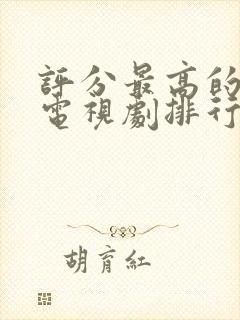 評分最高的
電視劇排行
胡育紅